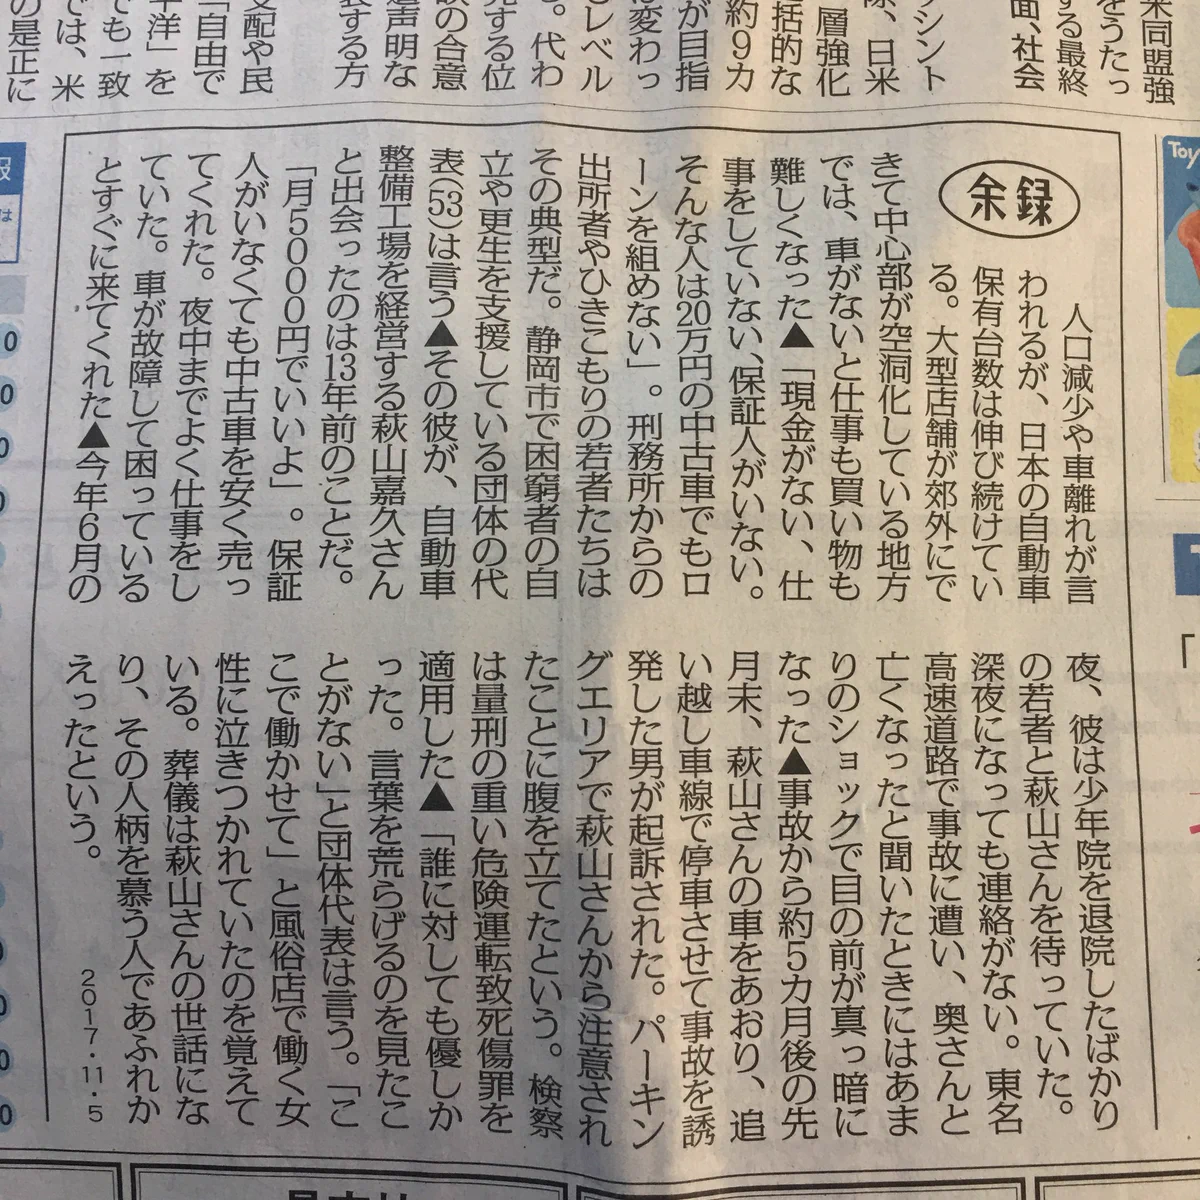 米同盟強
をうたっ
する最終
面、社会
シント
、日米
層強化
括的な
約９カ
が目指
は変わっ
レベル
る。代わ
する位
の合意
声明な
する方
支配や民
「自由で
洋」を
でも一致
では、米
の是正に
余録
人口減少や車離れが言
われるが、日本の自動車
保有台数は伸び続けてい
る。大型店舗が郊外にで
きて中心部が空洞化している地方
では、車がないと仕事も買い物も
難しくなった▲「現金がない、仕
事をしていない、保証人がいない。
そんな人は20万円の中古車でもロ
ーンを組めない」。刑務所からの
出所者やひきこもりの若者たちは
その典型だ。静岡市で困窮者の自
立や更生を支援している団体の代
表(53)は言う▲その彼が、自動車
整備工場を経営する萩山嘉久さん
と出会ったのは13年前のことだ。
「月５０００円でいいよ」。保証
人がいなくても中古車を安く売っ
てくれた。夜中までよく仕事をし
ていた。車が故障して困っている
とすぐに来てくれた▲今年６月の
夜、彼は少年院を退院したばかり
の若者と萩山さんを待っていた。
深夜になっても連絡がない。東名
高速道路で事故に遭い、奥さんと
亡くなったと聞いたときにはあま
りのショックで目の前が真っ暗に
なった▲事故から約５カ月後の先
月末、萩山さんの車をあおり、追
い越し車線で停車させて事故を誘
発した男が起訴された。パーキン
グエリアで萩山さんから注意され
たことに腹を立てたという。検察
は量刑の重い危険運転致死傷罪を
適用した▲「誰に対しても優しか
った。言葉を荒らげるのを見たこ
とがない」と団体代表は言う。「こ
こで働かせて」と風俗店で働く女
性に泣きつかれていたのを覚えて
いる。葬儀は萩山さんの世話にな
り、その人柄を慕う人であふれか
えったという。
２０１７・１１・５
Toy